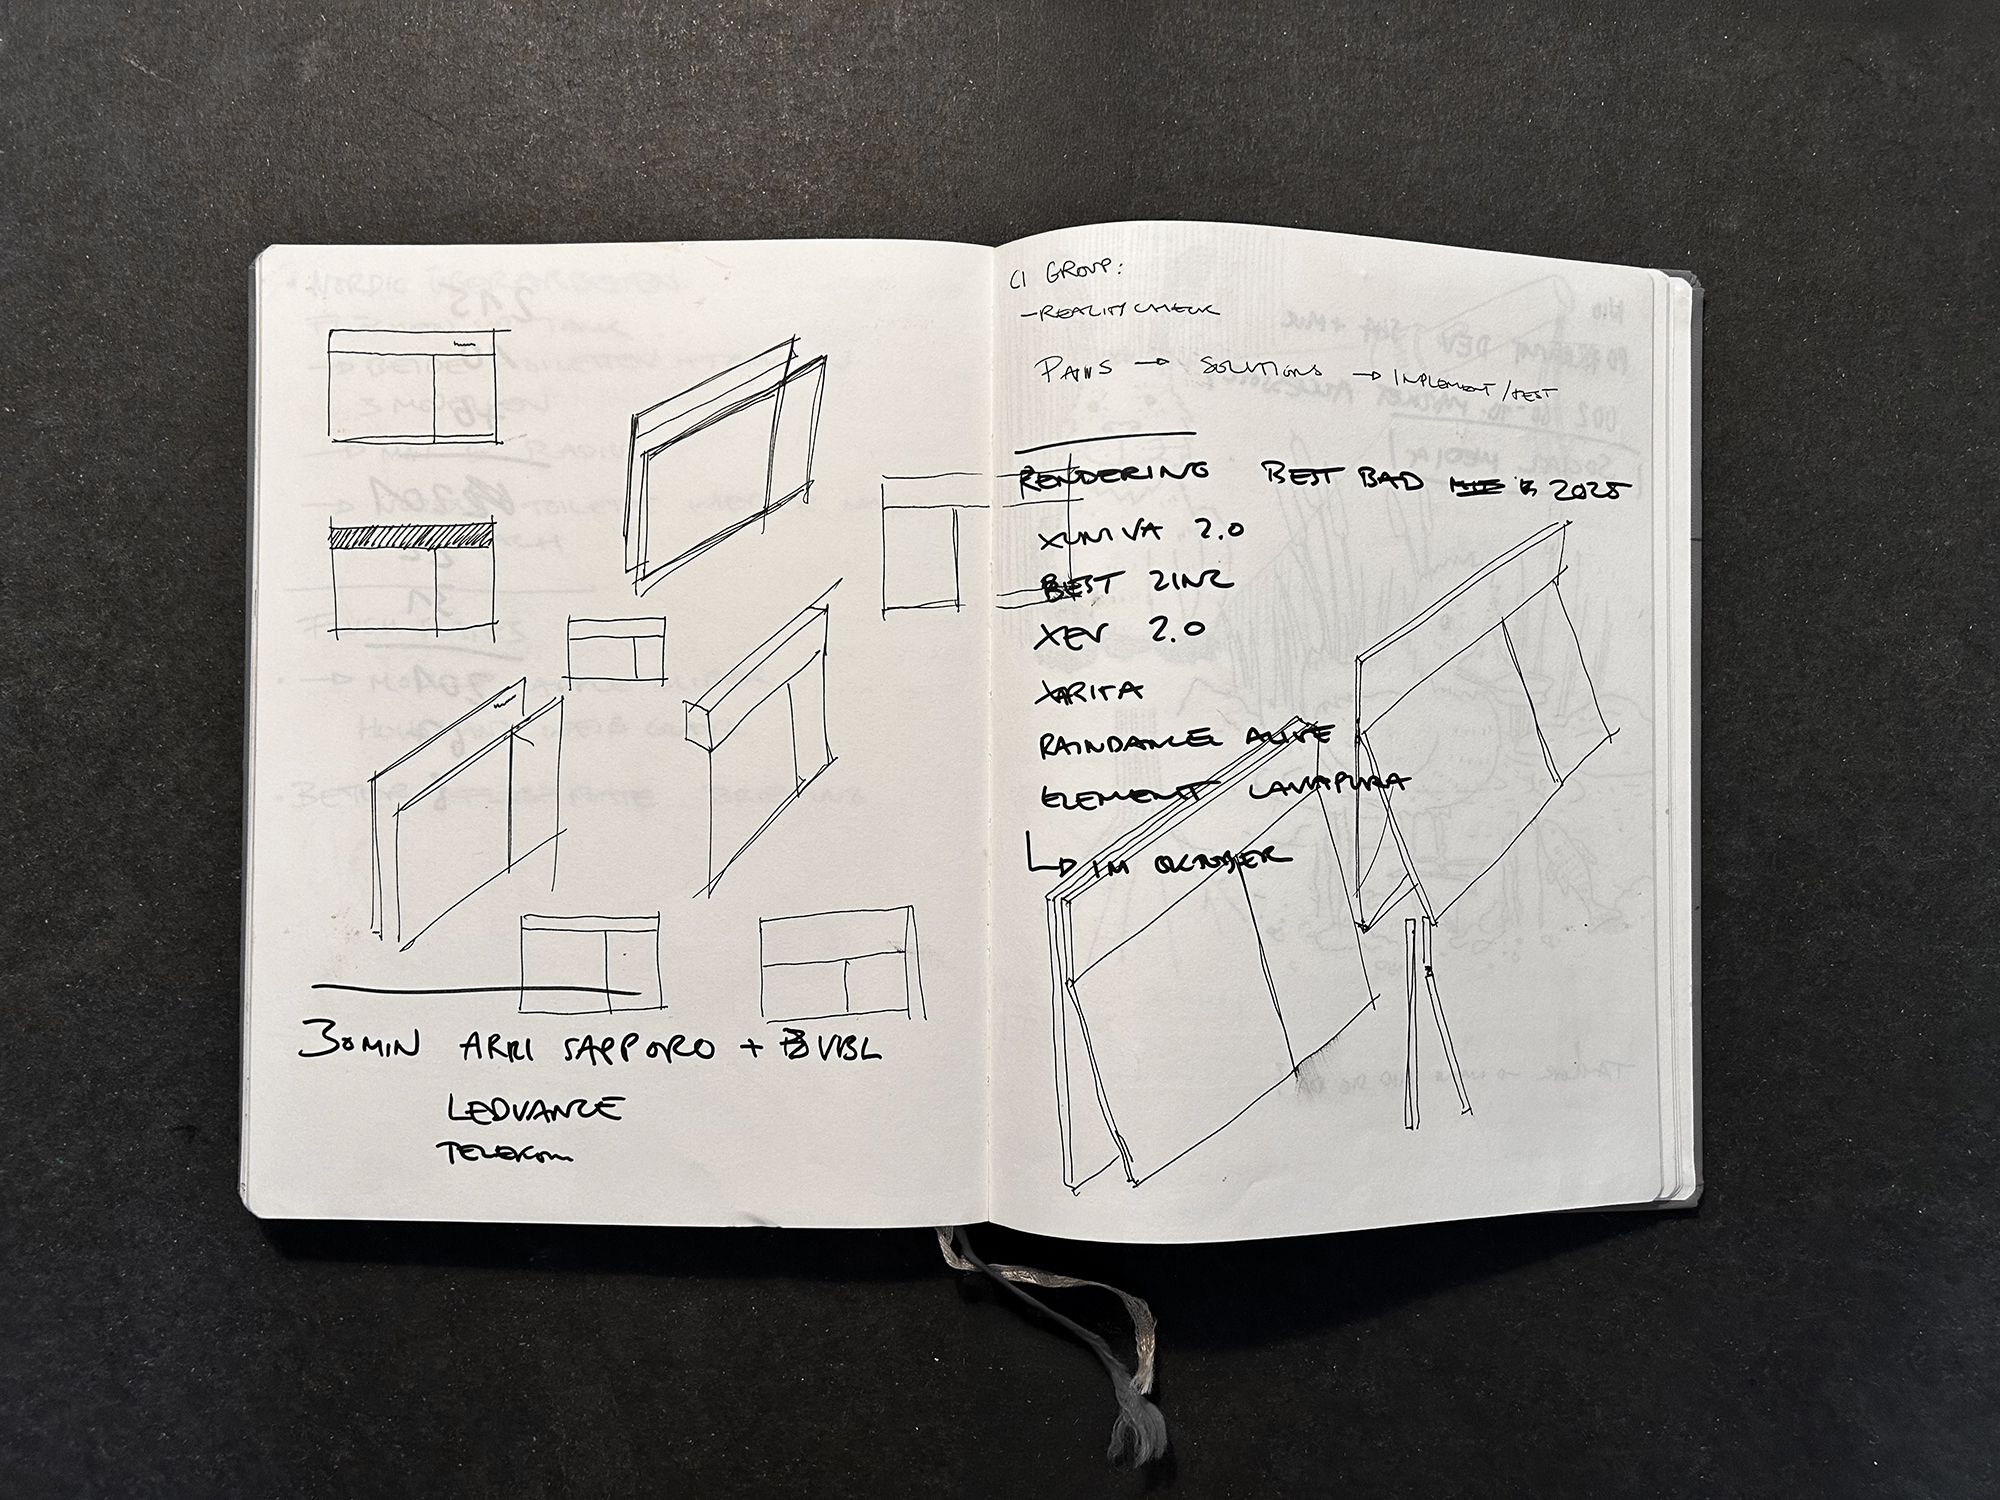 30MIN ARRI SAPPORO + VBL
LEDVANCE
TELEKOM
CI GROUP:
- REALITY CHECK
PAINS → SOLUTIONS → IMPLEMENT/TEST
RENDERING BEST BAD 2025
XUNIVA 2.0
BEST
XEV 2.0
XARITA
RAINDANCE ALIVE
ELEMENT LAVAPURA
↳ IM OKTOBER